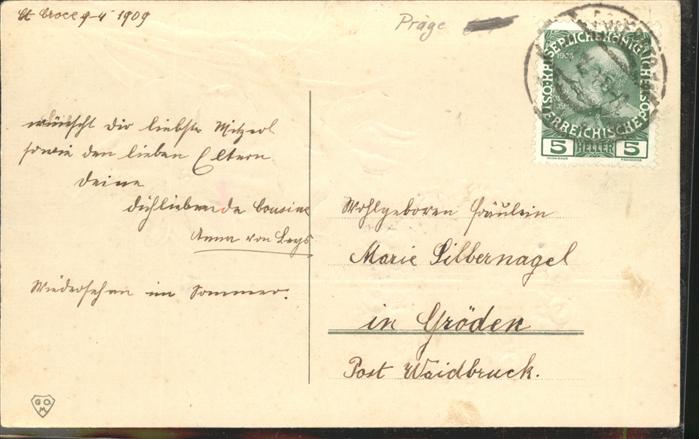 St Croce 9-4 1909
Präge
wünscht dir liebste Mitzerl
sowie den lieben Eltern
Deine
dichliebende Cousine
Anna von
Wiedersehen im Sommer.
KAISERLICHE KÖNIGLICHE
ÖSTERREICHISCHE
5 HELLER 5
Wohlgeboren Fräulein
Marie Silbernagel
in Gröden
Post Waidbruck.
G O M